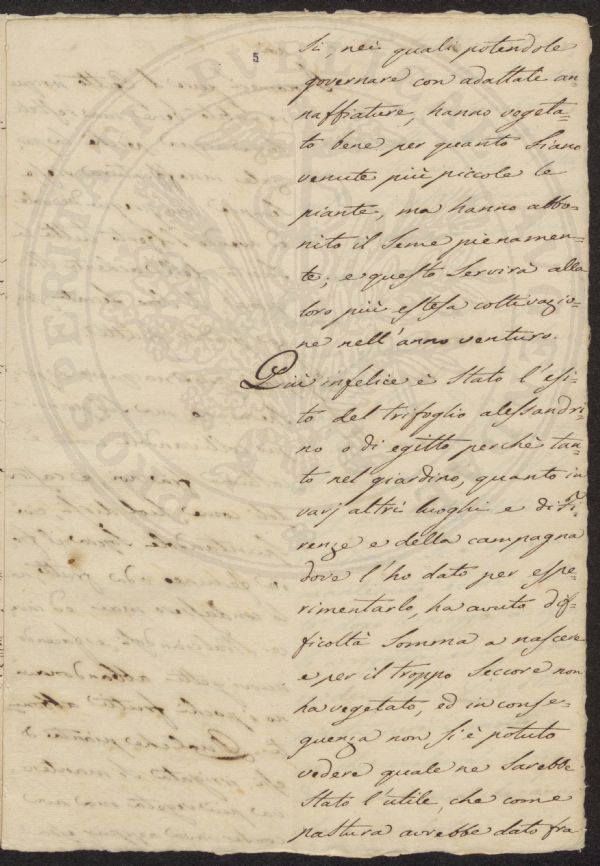 5
si, nei quali potendole
governare con adattate an=
naffiature, hanno vegeta=
to bene per quanto siano
venute più piccole le
piante, ma hanno abbo=
nito il seme pienamen=
te; e questo servirà alla
loro più estesa coltivazio=
ne nell'anno venturo.
Più infelice è stato l'esi=
to del trifoglio alessandri=
no o di egitto perchè tan=
to nel giardino, quanto in
varj altri luoghi e di Fi=
renze e della campagna
dove l'ho dato per espe=
rimentarlo, ha avuto dif=
ficoltà somma a nascere
e per il troppo seccore non
ha vegetato, ed in conse=
guenza non si è potuto
vedere quale ne sarebbe
stato l'utile, che come
pastura avrebbe dato fra